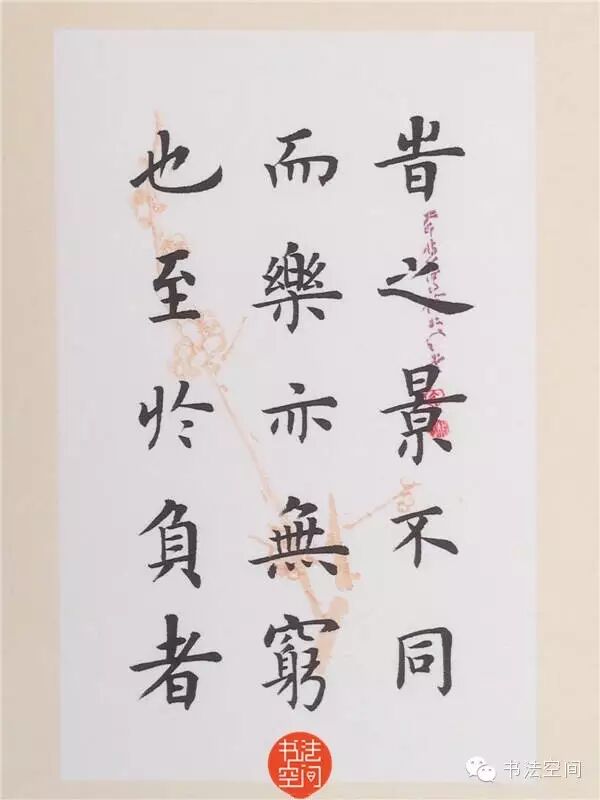 旹之景不同
而樂亦無窮
也至於負者
书法
空间
书法空间